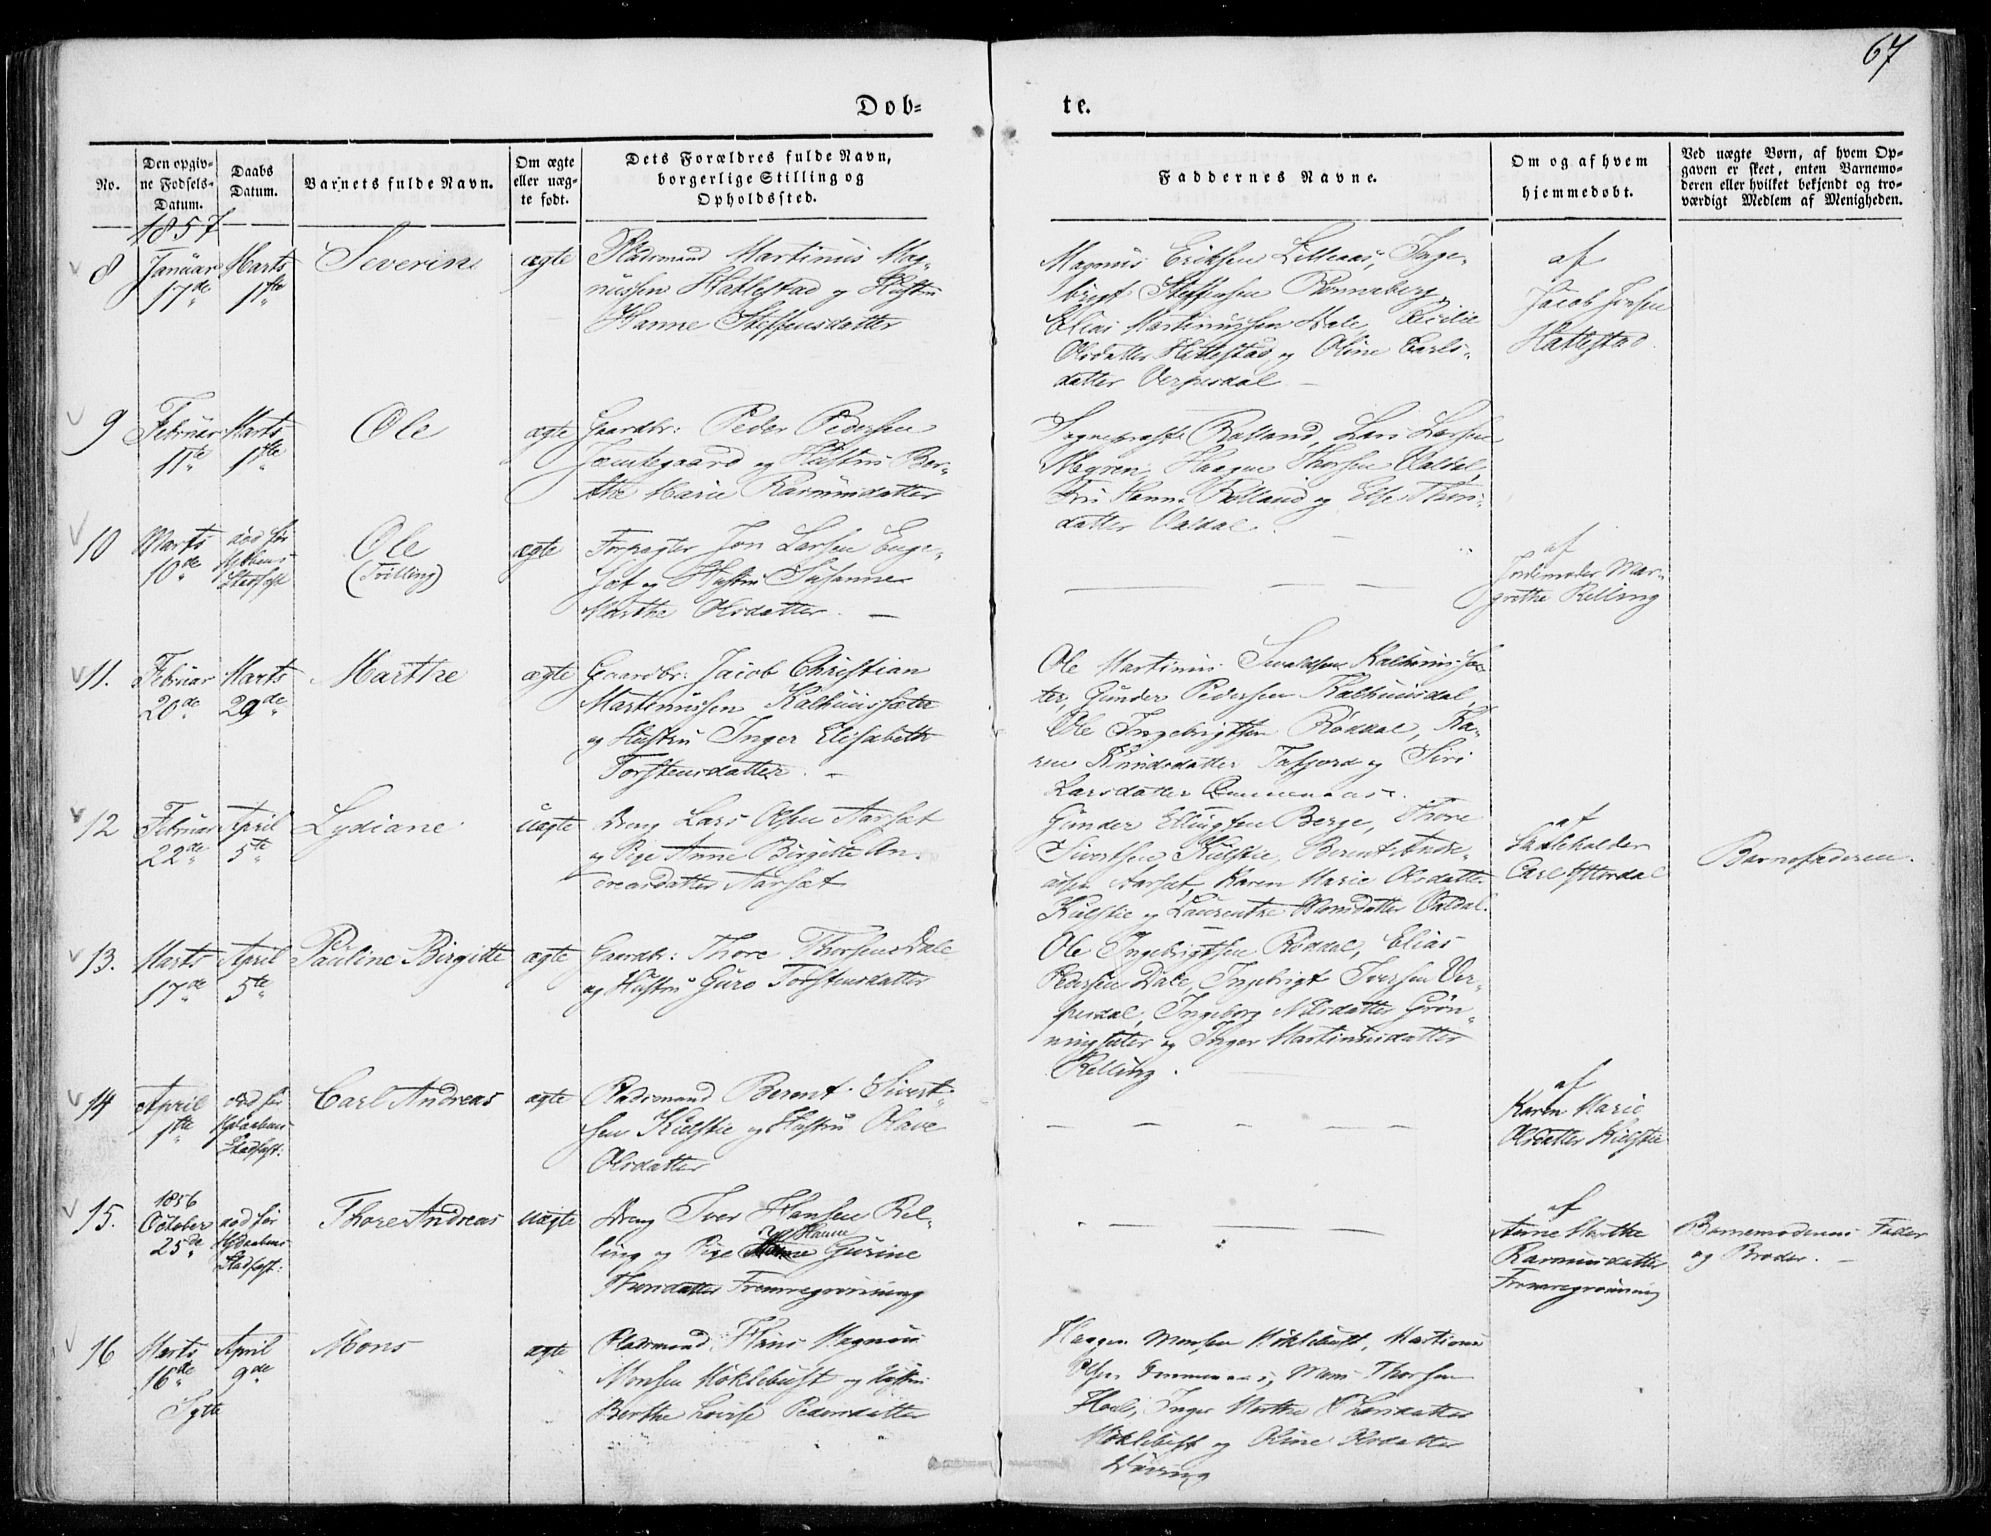 67
Døb-
te.
No.
Den opgiv-
ne Fødsels-
Datum.
Daabs
Datum.
Barnets fulde Navn.
Om ægte
eller uæg-
te født.
Dets Forældres fulde Navn,
borgerlige Stilling og
Opholdssted.
Faddernes Navne.
Om og af hvem
hjemmedøbt.
Ved uægte Børn, af hvem Op-
gaven er skeet, enten Barnemo-
deren eller hvilket bekjendt og tro-
værdigt Medlem af Menigheden.
1857
8
Januar
17de
Marts
1ste
Severin
ægte
Pladsmand Martinus Mag-
nussen Hatlestad og Hustru
Hanne Steffensdatter
Magnus Eriksen Lilleaas, Inge-
brigt Steffensen Rønneberg,
Elias Martinussen Dale,
Olsdatter Hatlestad og Oline Carls-
datter Verpesdal
af
Jacob
Hatlestad.
9
Februar
11te
Marts
1ste
Ole
ægte
Gaardbr: Peder Pedersen
og Hustru Ber-
the Marie Rasmusdatter
Sognepræst Rolland, Lars Larsen
Myren, Haagen Thorsen Valdal,
Fru Hanna Rolland og Else Thors-
datter Valdal.
10
Marts
10de
død før
Stadfest
Ole
(Tvilling)
ægte
Forpagter Jon Larsen Enge-
set og Hustru Susanne
Marthe Olsdatter.
af
Jordemoder Mar-
grethe Relling
11.
Februar
20de
Marts
29de
Marthe
ægte
Gaardbr: Jacob Christian
Martinussen Kalhussæter
og Hustru Inger Elisabeth
Torstensdatter.
Ole Martinus Sevaldsen Kalhussæ-
ter, Gunder Pedersen Kalhusdal,
Ole Ingebrigtsen Røddal, Ka-
ren Knudsdatter Tafjord og Siri
Larsdatter
12
Februar
22de
April
5te
Lydiane
uægte
Dreng Lars Olsen Aarset
og Pige Anne Birgitte An-
dreasdatter Aarset
Gunder Ellingsen Berge, Thore
Sivertsen Kielstie, Berent Andre-
asen Aarset, Karen Marie Olsdatter
Kielstie og Laurentze Monsdatter Valdal.
af
Skoleholder
Carl Ytterdal
Barnefaderen.
13.
Marts
17de
April
5te
Pauline Birgitte
ægte
Gaardbr: Thore Thorsen Dale
og Hustru Guro Torstensdatter
Ole Ingebrigtsen Røddal, Elias
Pedersen Dale, Ingebrigt Iversen Ver-
pesdal, Ingeborg Nilsdatter Grøn-
ningsæter og Inger Martinusdatter
Relling.
14
April
1ste
død før
Hjdaabens
Stadfest:
Carl Andreas
ægte
Pladsmand Berent Sivert-
sen Kielstie og Hustru Olave
Olsdatter
af
Karen Marie
Olsdatter Kielstie
15.
1856
October
25de
død før
Hjdaabens
Stadfest:
Thore Andreas
uægte
Dreng Iver Hansen Rel-
ling og Pige Hanne Gurine
Thorsdatter Fremregrønning
af
Anne Marthe
Rasmusdatter
Fremregrønning
Barnemoderens Fader
og Broder.
16
Marts
16de
Sylte
April
9de
Mons
ægte
Pladsmand Hans Magnus
Monsen Møklebust og Hustru
Berthe Lovise Pedersdatter
Haagen Monsen Møklebust, Martinus
Olsen, Mons Thorsen
Hoel, Inger Marthe Thorsdatter
Møklebust og Oline Olsdatter